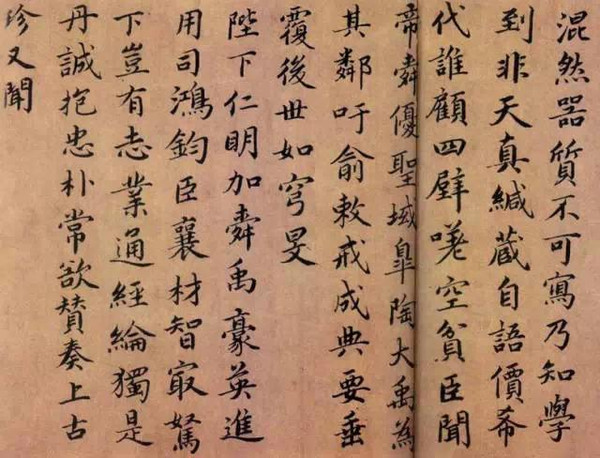 混然器質不可寫乃知學
到非天真緘藏自語價希
代誰顧四壁嗟空貧臣聞
帝舜優聖域皋陶大禹為
其鄰吁俞敕戒成典要垂
覆後世如穹旻
陛下仁明加舜禹豪英進
用司鴻鈞臣襄材智寂駑
下豈有志業通經綸獨是
丹誠抱忠朴常欲贊奏上古
珍又聞